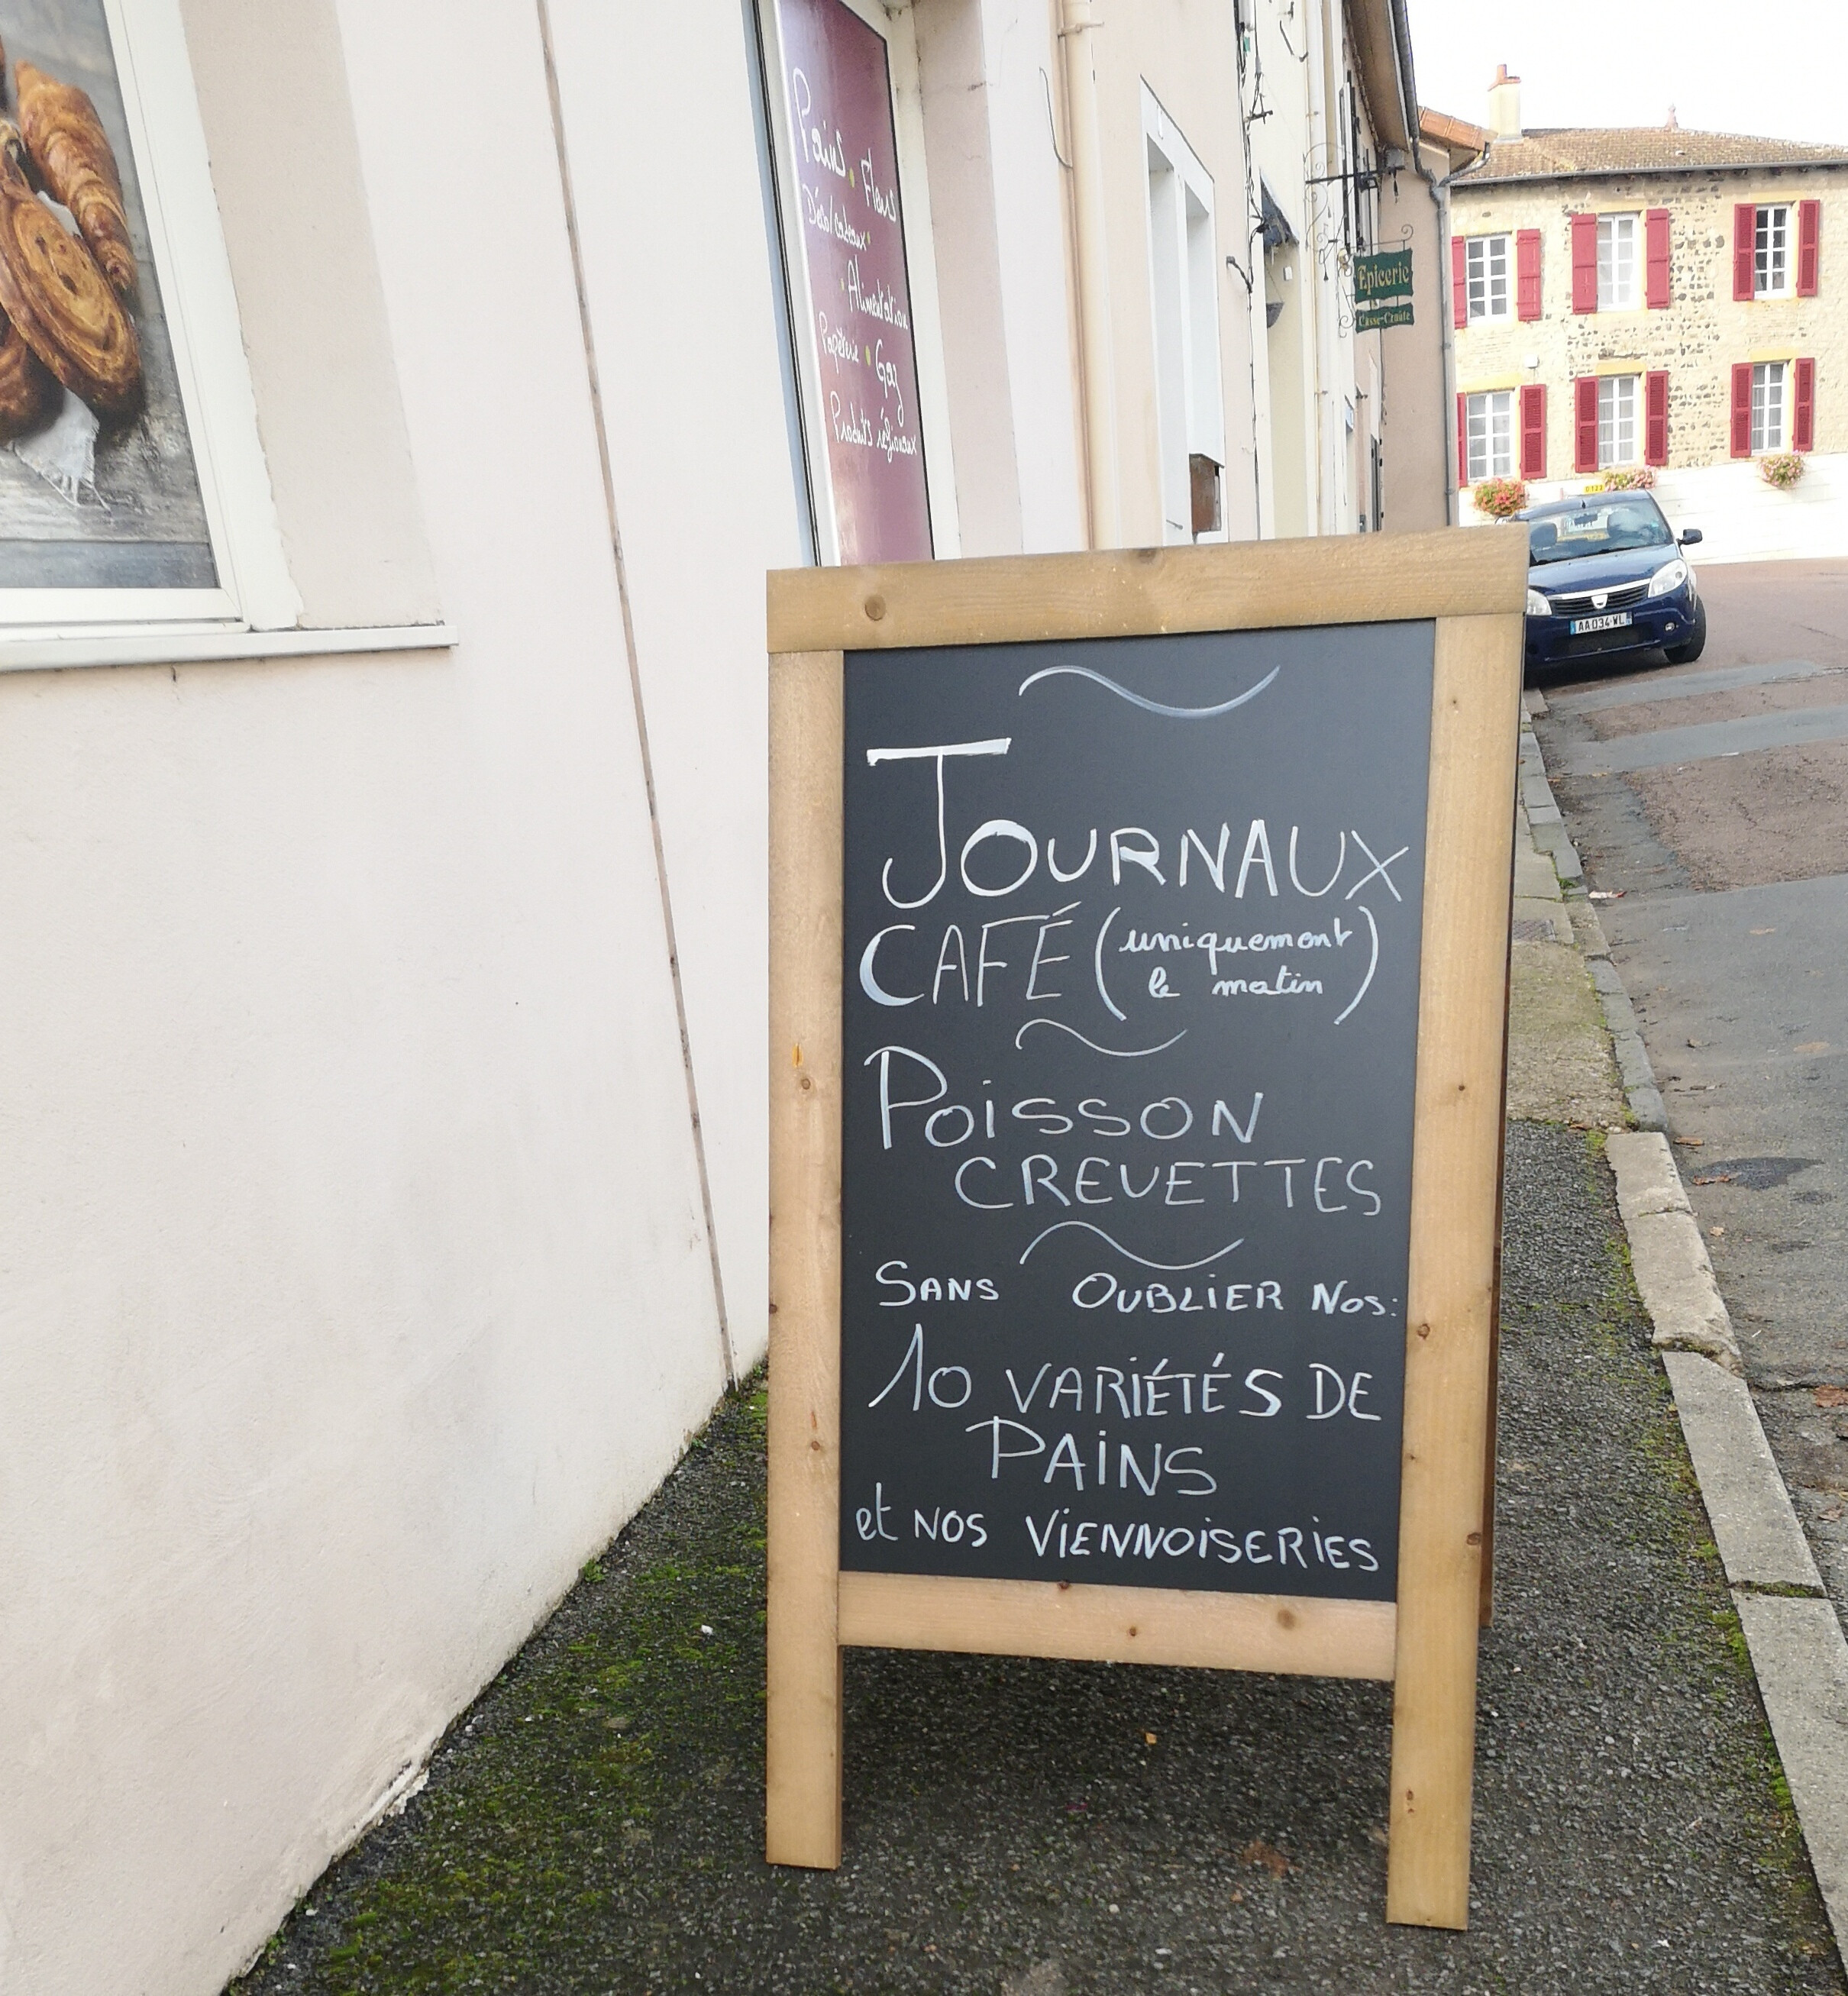 Pains • Fleurs
Alimentation
Gaz
Produits régionaux
Epicerie
Casse-Croûte
AA 034 WL
JOURNAUX
CAFÉ (uniquement
le matin)
POISSON
CREVETTES
SANS OUBLIER NOS:
10 VARIÉTÉS DE
PAINS
et NOS VIENNOISERIES